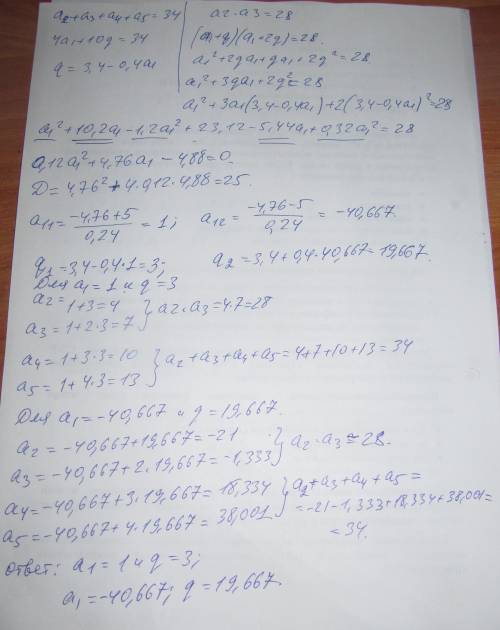 a2+a3+a4+a5=34
4a1+10q=34
q=3,4-0,4a1
a2·a3=28
(a1+q)(a1+2q)=28.
a1²+2qa1+qa1+2q²=28
a1²+3qa1+2q²=28
a1²+3a1(3,4-0,4a1)+2(3,4-0,4a1)²=28
a1²+10,2a1-1,2a1²+23,12-5,44a1+0,32a1²=28
0,12a1²+4,76a1-4,88=0
D=4,76²+4·0,12·4,88=25.
a11=(-4,76+5)/0,24=1; a12=(-4,76-5)/0,24=-40,667.
q1=3,4-0,4·1=3; q2=3,4+0,4·40,667=19,667.
Для a1=1 и q=3
a2=1+3=4
a3=1+2·3=7 } a2·a3=4·7=28
a4=1+3·3=10
a5=1+4·3=13 } a2+a3+a4+a5=4+7+10+13=34
Для a1=-40,667 и q=19,667.
a2=-40,667+19,667=-21
a3=-40,667+2·19,667=-1,333 } a2·a3≈28.
a4=-40,667+3·19,667=18,334
a5=-40,667+4·19,667=38,001 } a2+a3+a4+a5=
=-21-1,333+18,334+38,001=
=34.
ответ: a1=1 и q=3;
a1=-40,667; q=19,667.